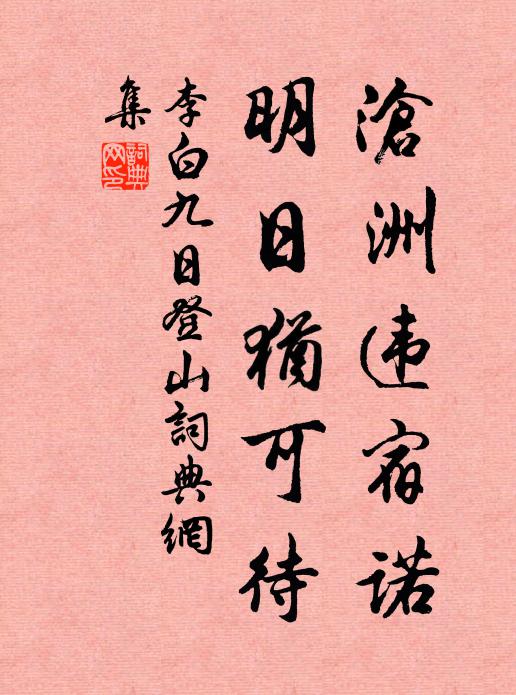 滄洲违宿诺
明日猶可待
李白九日登山詞典網
集
詞典网印